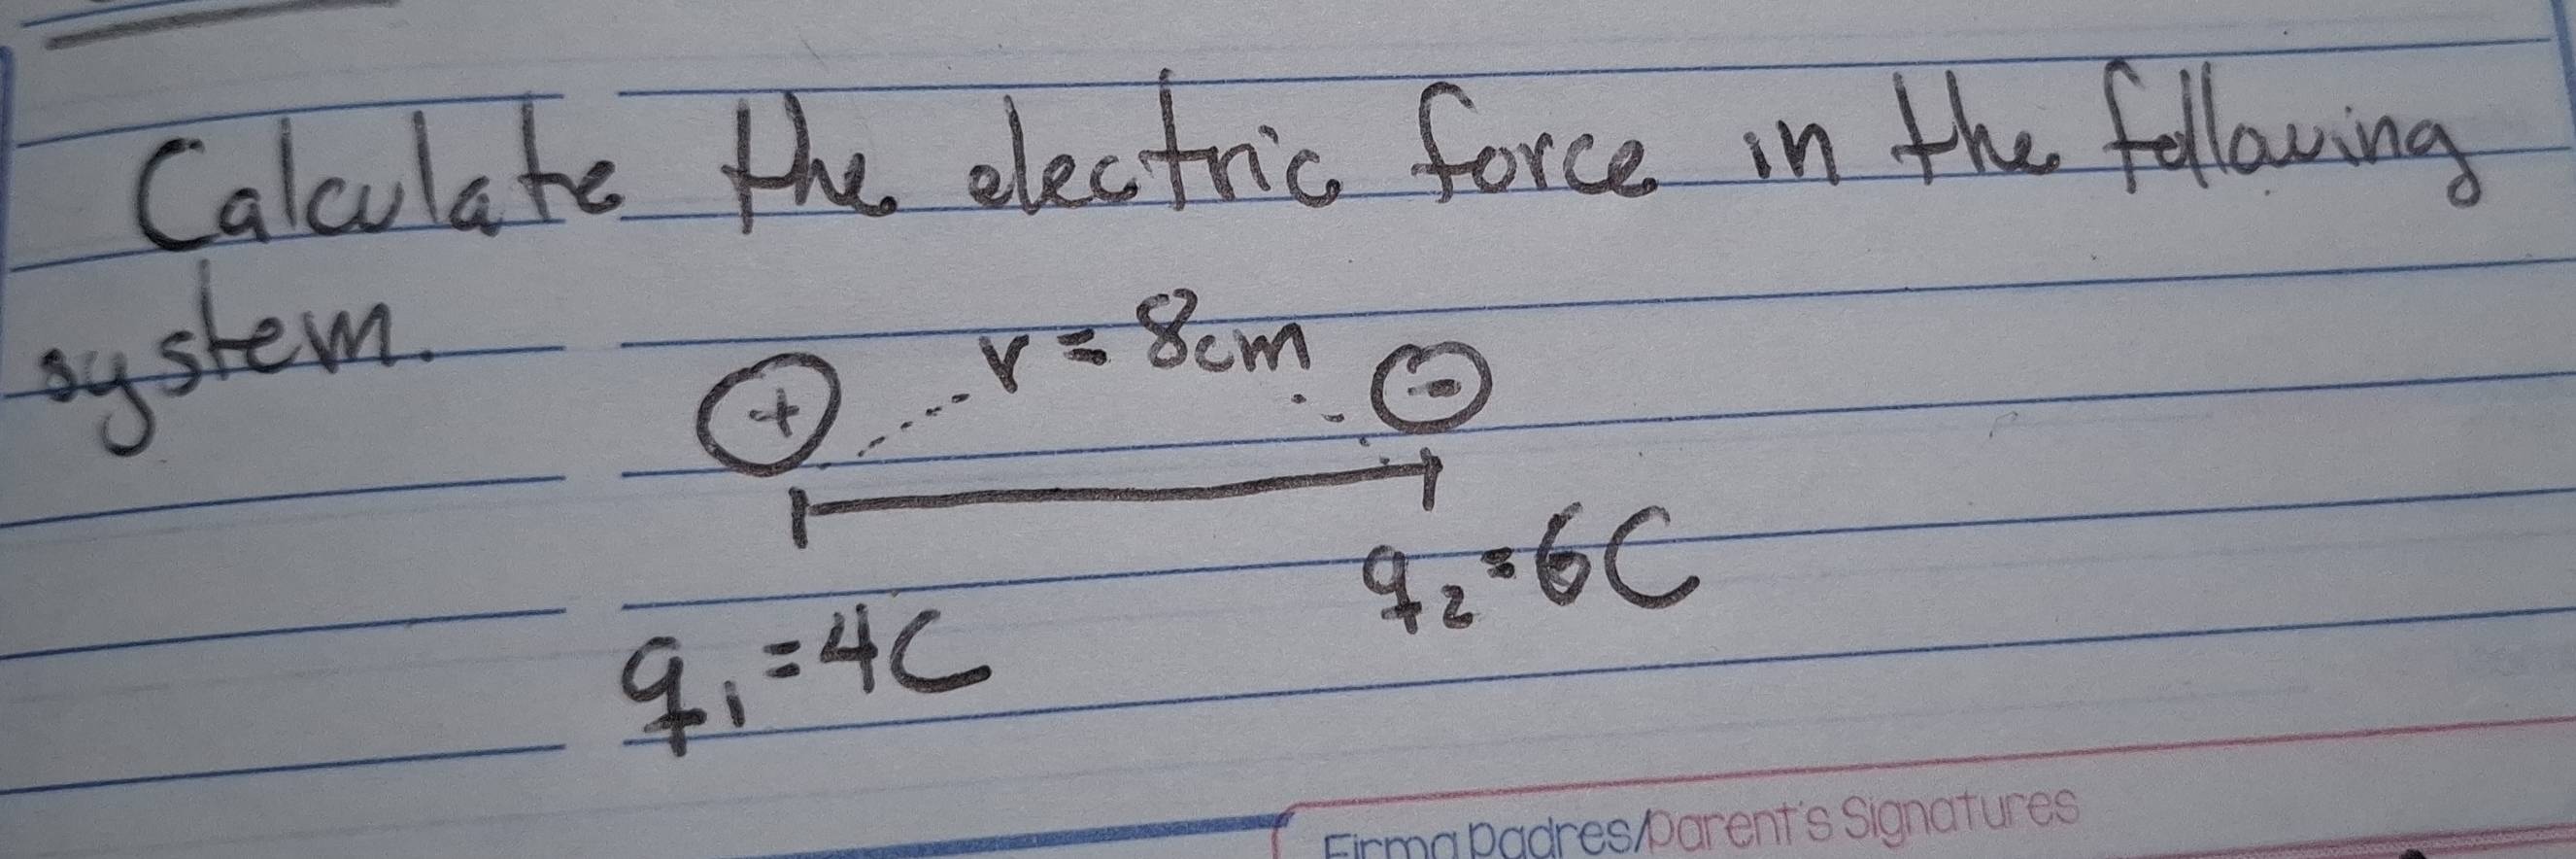 Calculate the electric force in the following
system.
+ r = 8cm -
q₂ = 6C
q₁ = 4C
Firma Padres/Parent's Signatures